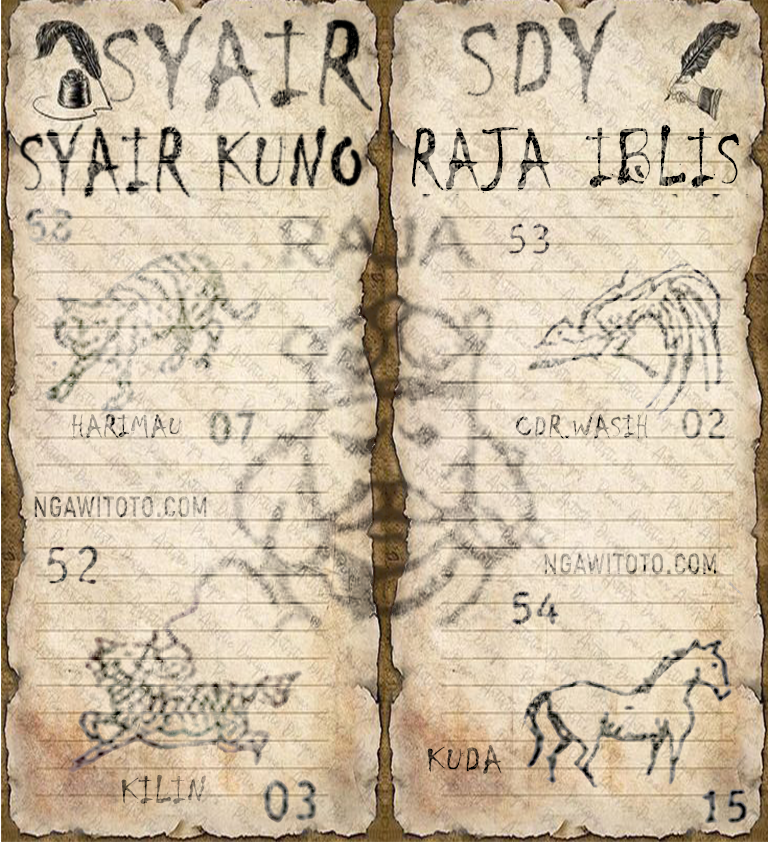 SYAIR SDY
SYAIR KUNO RAJA IBLIS
RAJA
53
HARIMAU 07
CDR.WASIH 02
NGAWITOTO.COM
NGAWITOTO.COM
52
54
KILIN 03
KUDA
15